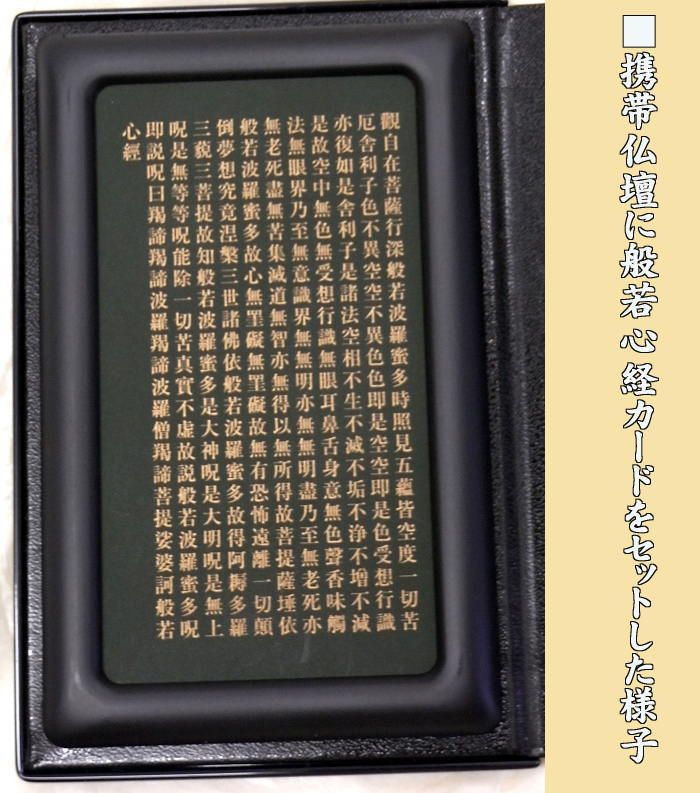 ■携帯仏壇に般若心経カードをセットした様子
觀自在菩薩行深般若波羅蜜多時照見五蘊皆空度一切苦
厄舍利子色不異空空不異色色即是空空即是色受想行識
亦復如是舍利子是諸法空相不生不滅不垢不浄不增不減
是故空中無色無受想行識無眼耳鼻舌身意無色聲香味觸
法無眼界乃至無意識界無無明亦無無明盡乃至無老死亦
無老死盡無苦集滅道無智亦無得以無所得故菩提薩埵依
般若波羅蜜多故心無罣礙無罣礙故無有恐怖遠離一切顛
倒夢想究竟涅槃三世諸佛依般若波羅蜜多故得阿耨多羅
三藐三菩提故知般若波羅蜜多是大神呪是大明呪是無上
呪是無等等呪能除一切苦真實不虚故説般若波羅蜜多呪
即説呪曰羯諦羯諦波羅羯諦波羅僧羯諦菩提娑婆訶般若
心經